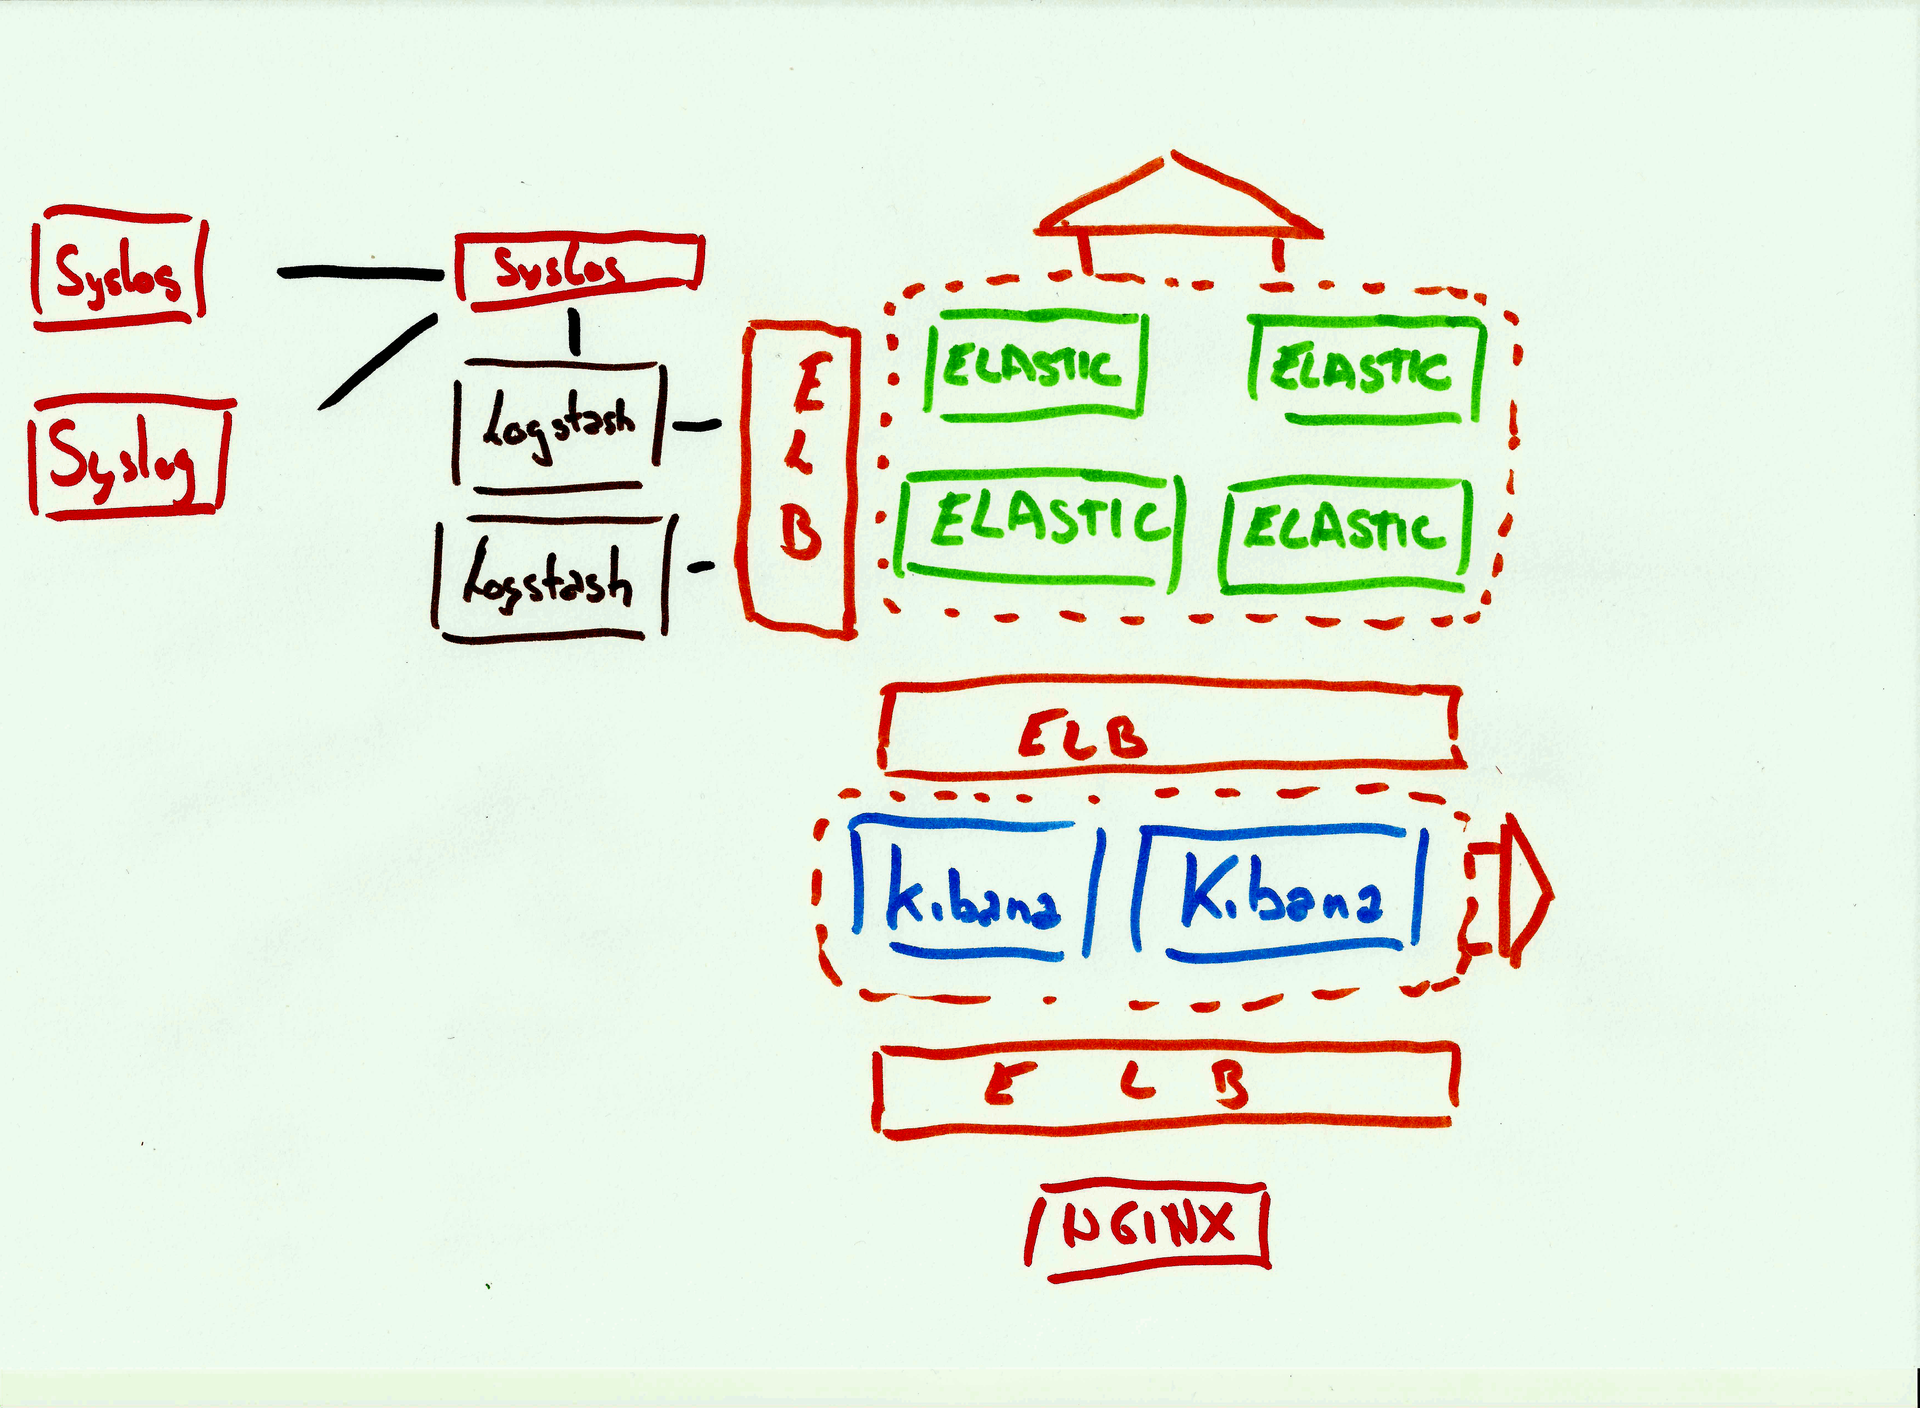 Syslog
Syslog
Syslog
Logstash
Logstash
E
L
B
ELASTIC
ELASTIC
ELASTIC
ELASTIC
ELB
Kibana
Kibana
E L B
NGINX